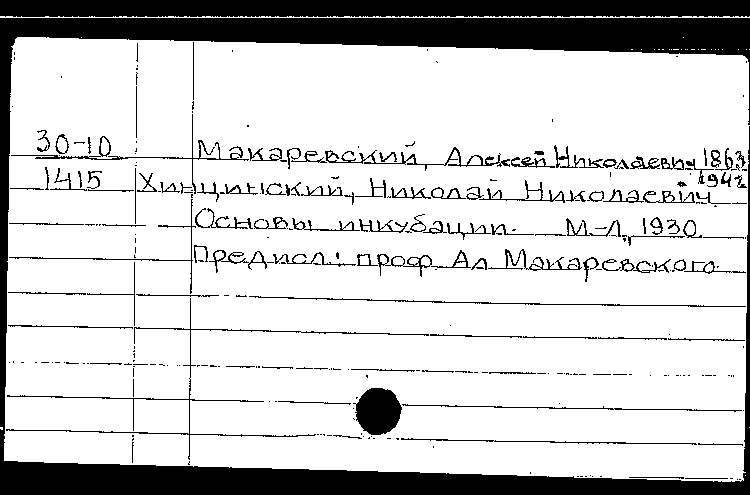 30-10 Макаревский, Алексей Николаевич 1863
1415 Хинцинский, Николай Николаевич. 1942
Основы инкубации. М.-Л., 1930.
Предисл.: проф. Ал Макаревского.